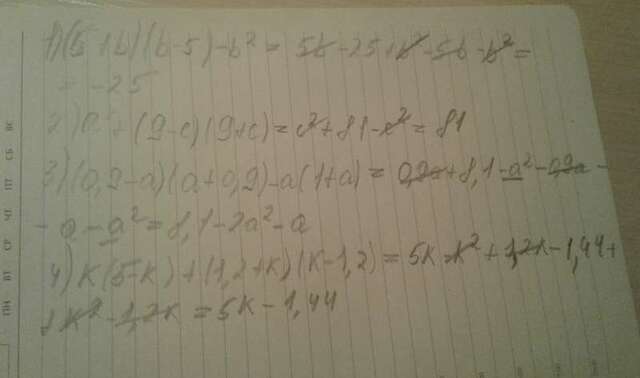 1) (5+b)(b-5)-b² = 5b-25+b²-5b-b² =
= -25
2) c²+(9-c)(9+c) = c²+81-c² = 81
3) (0,9-a)(a+0,9)-a(1+a) = 0,9a+8,1-a²-0,9a -
- a - a² = 8,1-2a²-a
4) k(5-k)+(1,2+k)(k-1,2) = 5k-k²+1,2k-1,44+
+k²-1,2k = 5k-1,44
ПН ВТ СР ЧТ ПТ СБ ВС